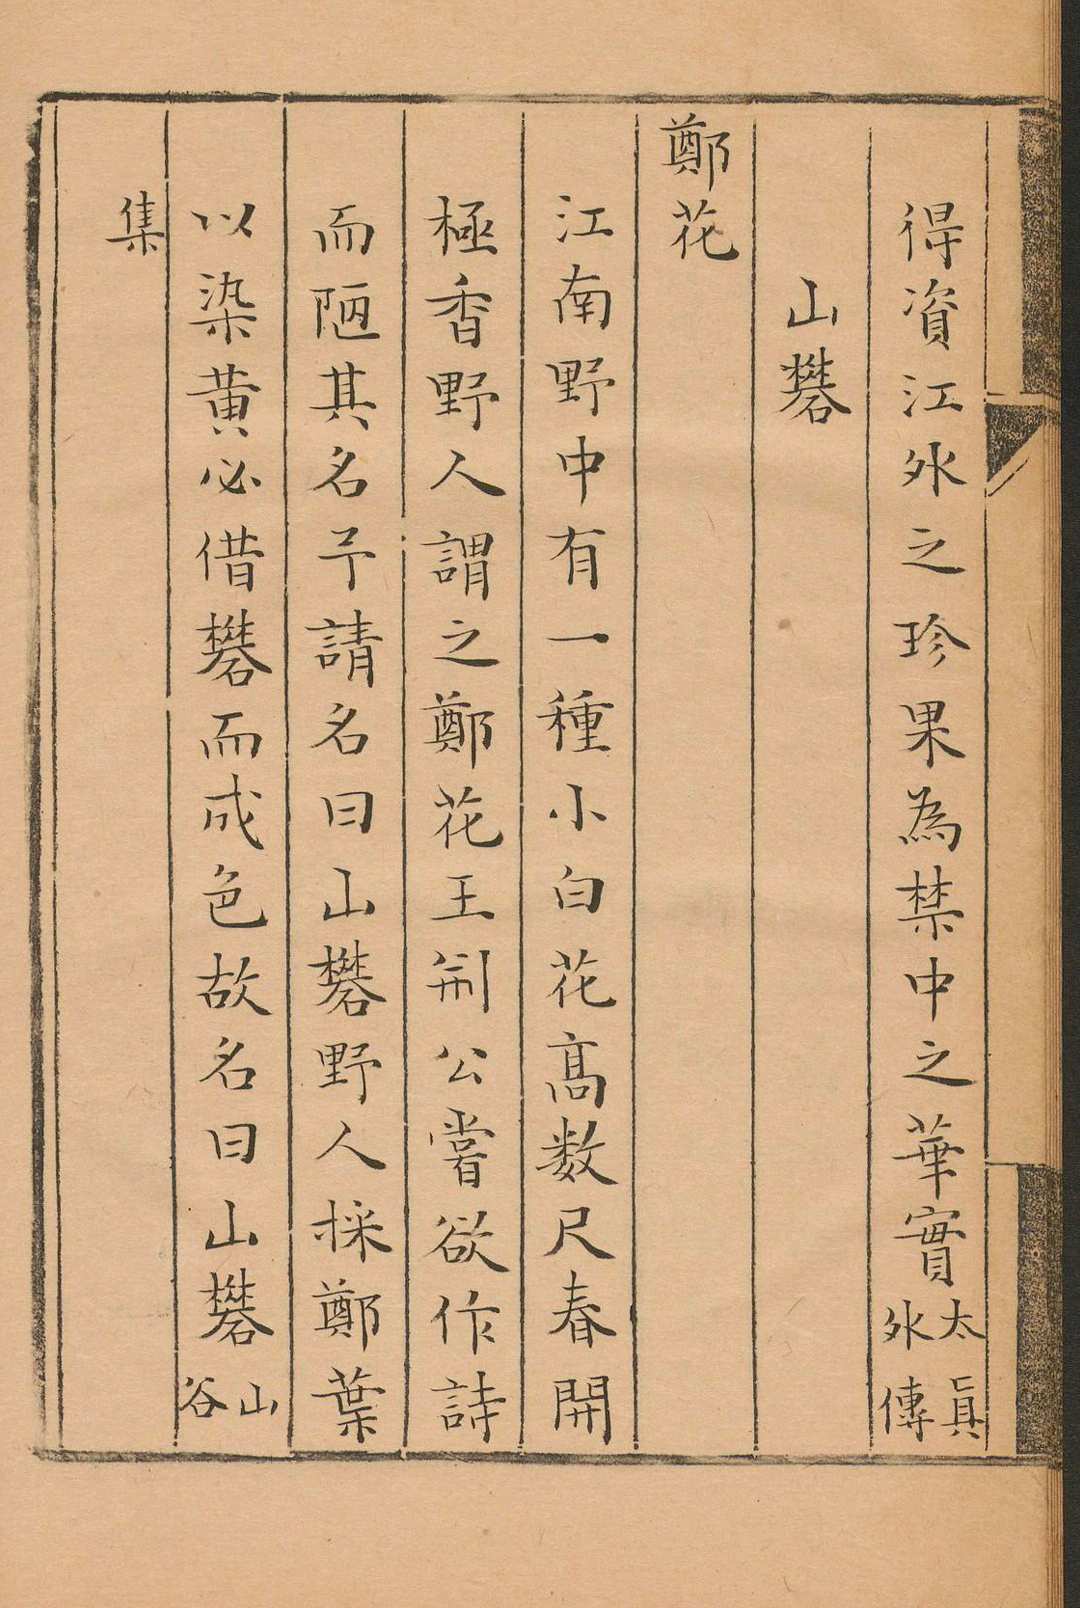 得資江外之珍果為禁中之華實太真外傳
山礬
鄭花
江南野中有一種小白花高数尺春開
極香野人謂之鄭花王荊公嘗欲作詩
而陋其名予請名曰山礬野人採鄭葉
以染黃必借礬而成色故名曰山礬山谷
集